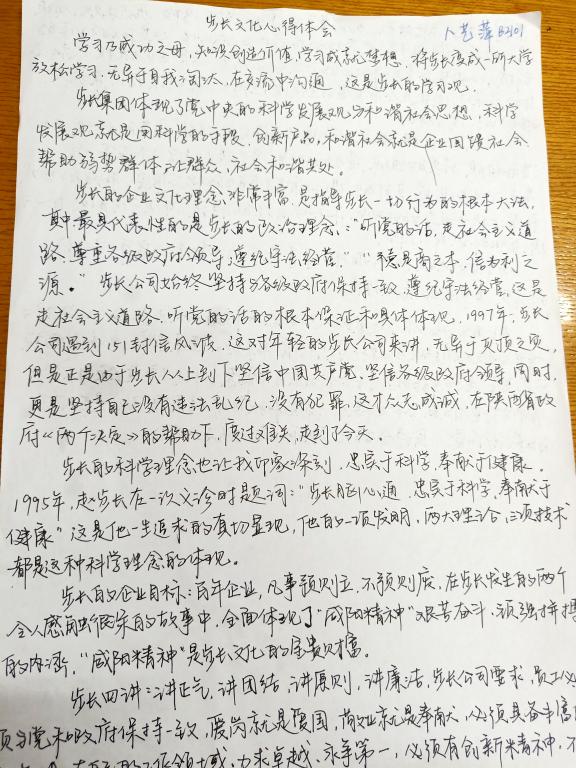 步长文化心得体会
卜艺萍 B2101
学习乃成功之母,知识创造价值,学习成就梦想,将步长变成一所大学
放松学习,无异于自我淘汰,在交流中沟通,这是步长的学习观。
步长集团体现了党中央的科学发展观与和谐社会思想,科学
发展观就是用科学的手段,创新产品,和谐社会就是企业回馈社会
帮助弱势群体,让群众、社会和谐共处。
步长的企业文化理念,非常丰富,是指导步长一切行为的根本大法,
其中最具代表性的是步长的政治理念:“听党的话,走社会主义道
路,尊重各级政府领导,遵纪守法经营。”“德是商之本,信为利之
源。”步长公司始终坚持与各级政府保持一致,遵纪守法经营,这是
走社会主义道路,听党的话的根本保证和具体体现,1997年,步长
公司遇到151封信风波,这对年轻的步长公司来讲,无异于灭顶之灾,
但是正是由于步长人从上到下坚信中国共产党,坚信各级政府领导,同时,
更是坚持自己没有违法乱纪,没有犯罪,这才众志成诚,在陕西省政
府《两个决定》的帮助下,度过难关,走到了今天。
步长的科学理念也让我印象深刻,忠实于科学,奉献于健康,
1995年,赵步长在一次义诊时题词:“步长脑心通,忠实于科学,奉献于
健康”这是他一生追求的真切显现,他的一项发明,两大理论,三项技术
都是这种科学理念的体现。
步长的企业目标:百年企业,凡事预则立,不预则废,在步长发生的两个
令人感触很深的故事中,全面体现了“咸阳精神”艰苦奋斗,顽强拼搏
的内涵,“咸阳精神”是步长文化的宝贵财富。
步长四讲:讲正气,讲团结,讲原则,讲廉洁,步长公司要求,员工必
须与党和政府保持一致,爱岗就是爱国,敬业就是奉献,必须具备丰富的
工作领域,力求卓越,永争第一,必须有创新精神,不